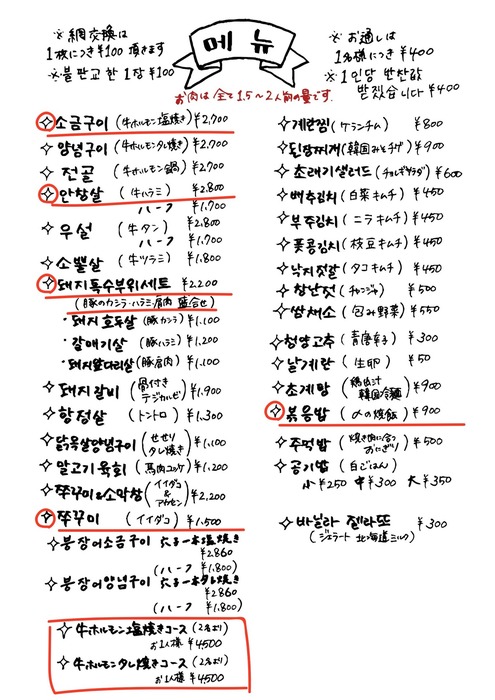 ※網交換は
1枚につき¥100 頂きます
※불판교환 1장 ¥100
메뉴
※お通しは
1名様につき ¥400
※1인당 반찬값
받겠습니다 ¥400
お肉は全て1.5〜2人前の量です.
소금구이 (牛ホルモン塩焼き) ¥2,700
양념구이 (牛ホルモンタレ焼き) ¥2,700
전골 (牛ホルモン鍋) ¥2,700
안창살 (牛ハラミ) ¥2.800
ハーフ ¥1.700
우설 (牛タン) ¥2.800
ハーフ ¥1.700
소뽈살 (牛ツラミ) ¥1.800
돼지특수부위세트 ¥2.200
(豚のカシラ・ハラミ、肩肉 盛合せ)
・돼지호두살 (豚カシラ) ¥1.100
・갈매기살 (豚ハラミ) ¥1.200
・돼지앞다리살 (豚肩肉) ¥1.100
돼지갈비 (骨付きテジカルビ) ¥1.900
항정살 (トントロ) ¥1.300
닭목살양념구이 (せせりタレ焼き) ¥1,100
말고기육회 (馬肉ユッケ) ¥1,200
쭈꾸미&소막창 (イイダコ&アカセン) ¥2,200
쭈꾸미 (イイダコ) ¥1,500
붕장어소금구이 穴子一本塩焼き
¥2860
(ハーフ ¥1.800)
붕장어양념구이 穴子一本タレ焼き
¥2860
(ハーフ ¥1.800)
牛ホルモン塩焼きコース (2名より)
お1人様 ¥4500
牛ホルモンタレ焼きコース (2名より)
お1人様 ¥4500
계란찜 (ケランチム) ¥800
된장찌개 (韓国みそチゲ) ¥900
초래기샐러드 (チョレギサラダ) ¥600
배추김치 (白菜キムチ) ¥450
부추김치 (ニラキムチ) ¥450
풋콩김치 (枝豆キムチ) ¥450
낙지젓갈 (タコキムチ) ¥450
창난젓 (チャンジャ) ¥500
쌈채소 (包み野菜) ¥550
청양고추 (青唐辛子) ¥300
날계란 (生卵) ¥50
초계면 (鶏出汁韓国冷麺) ¥900
볶음밥 (〆の焼飯) ¥900
주먹밥 (焼き肉に合うおにぎり) ¥500
공기밥 (白ごはん)
小 ¥250 中 ¥300 大 ¥350
바닐라 젤라또 ¥300
(ジェラート 北海道ミルク)